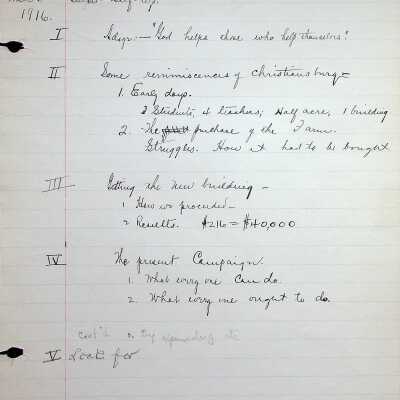 1916.
I Sdgn:— "God helps those who help themselves."
II Some reminiscences of Christiansburg—
1. Early days.
Students, 4 teachers; Half acre, 1 building
2. The purchase of the Farm.
Struggles. How it had to be bought
III Getting the new building —
1 How we proceeded—
2 Results. $216 = $40,000
IV The present Campaign.
1. What every one can do.
2. What every one ought to do.
cont'd
V Look for